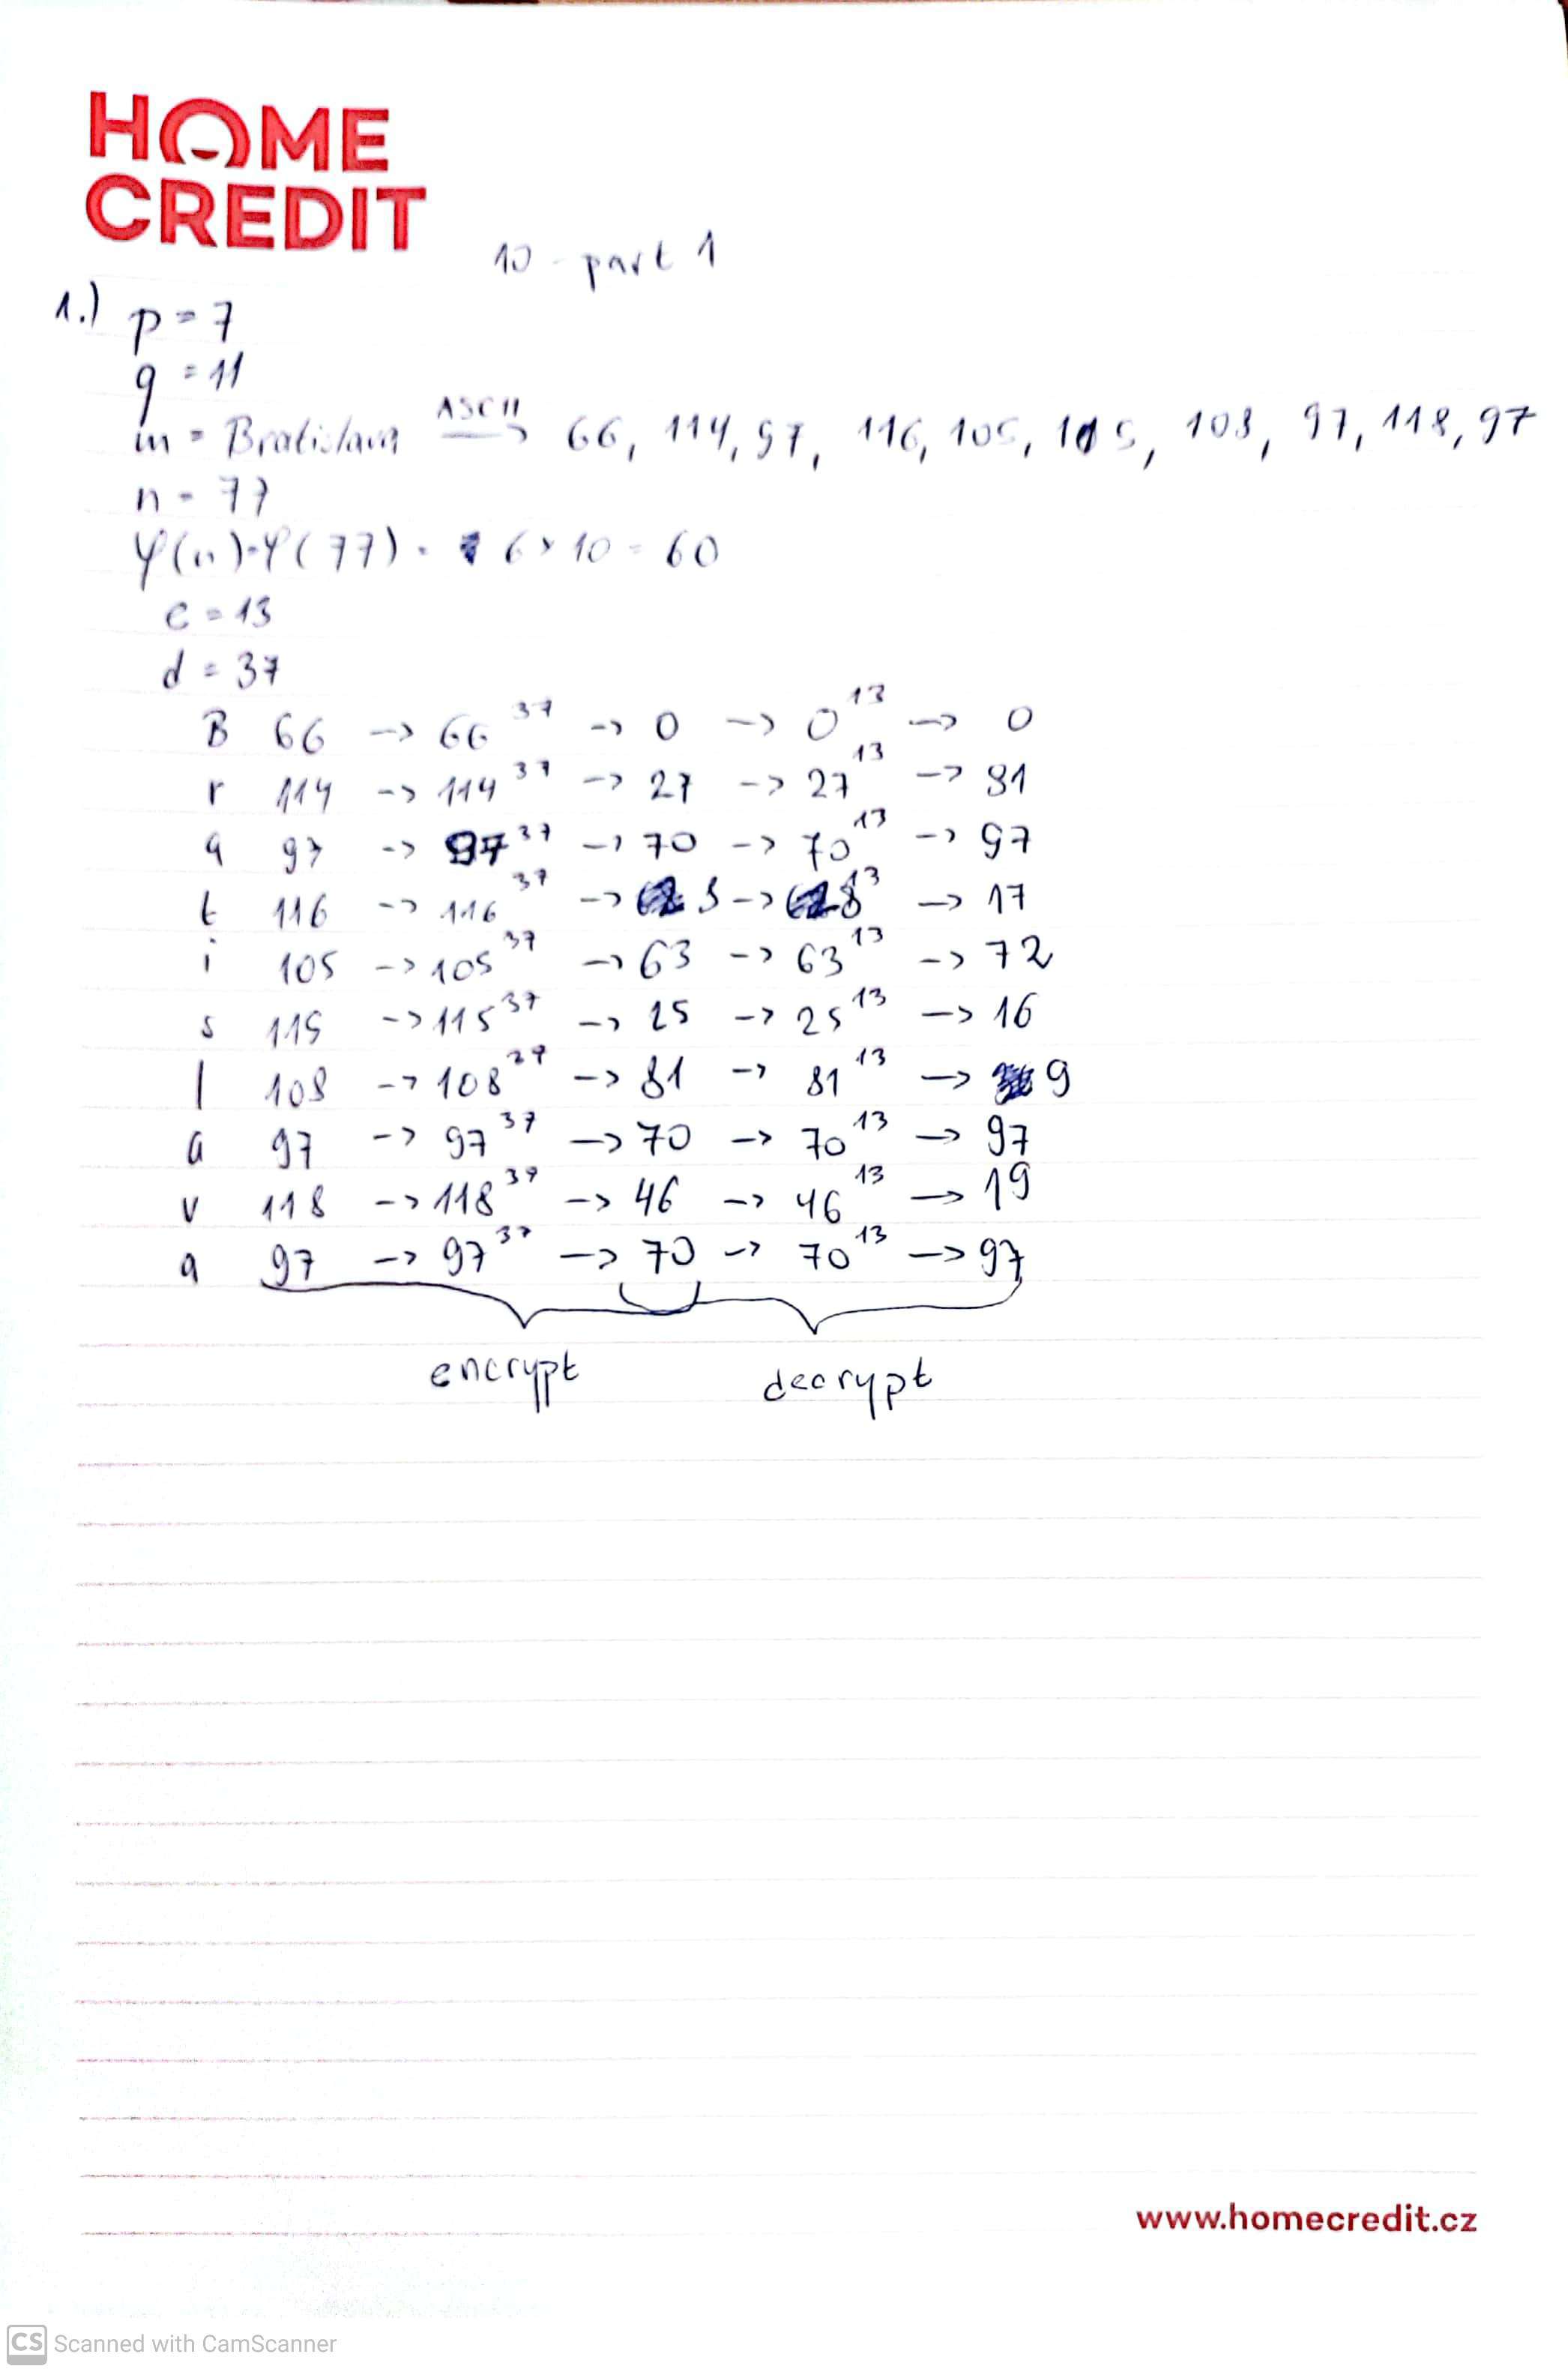 HOME
CREDIT
10 - part 1
1.) p = 7
q = 11
m = Bratislava ASCII → 66, 114, 97, 116, 105, 115, 108, 97, 118, 97
n = 77
φ(n) = φ(77) = 6 × 10 = 60
e = 13
d = 37
B 66 -> 66^37 -> 0 -> 0^13 -> 0
r 114 -> 114^37 -> 27 -> 27^13 -> 81
a 97 -> 97^37 -> 70 -> 70^13 -> 97
t 116 -> 116^37 -> 8 -> 8^13 -> 17
i 105 -> 105^37 -> 63 -> 63^13 -> 72
s 115 -> 115^37 -> 25 -> 25^13 -> 16
l 108 -> 108^37 -> 81 -> 81^13 -> 9
a 97 -> 97^37 -> 70 -> 70^13 -> 97
v 118 -> 118^37 -> 46 -> 46^13 -> 19
a 97 -> 97^37 -> 70 -> 70^13 -> 97
encrypt decrypt
www.homecredit.cz
CS Scanned with CamScanner